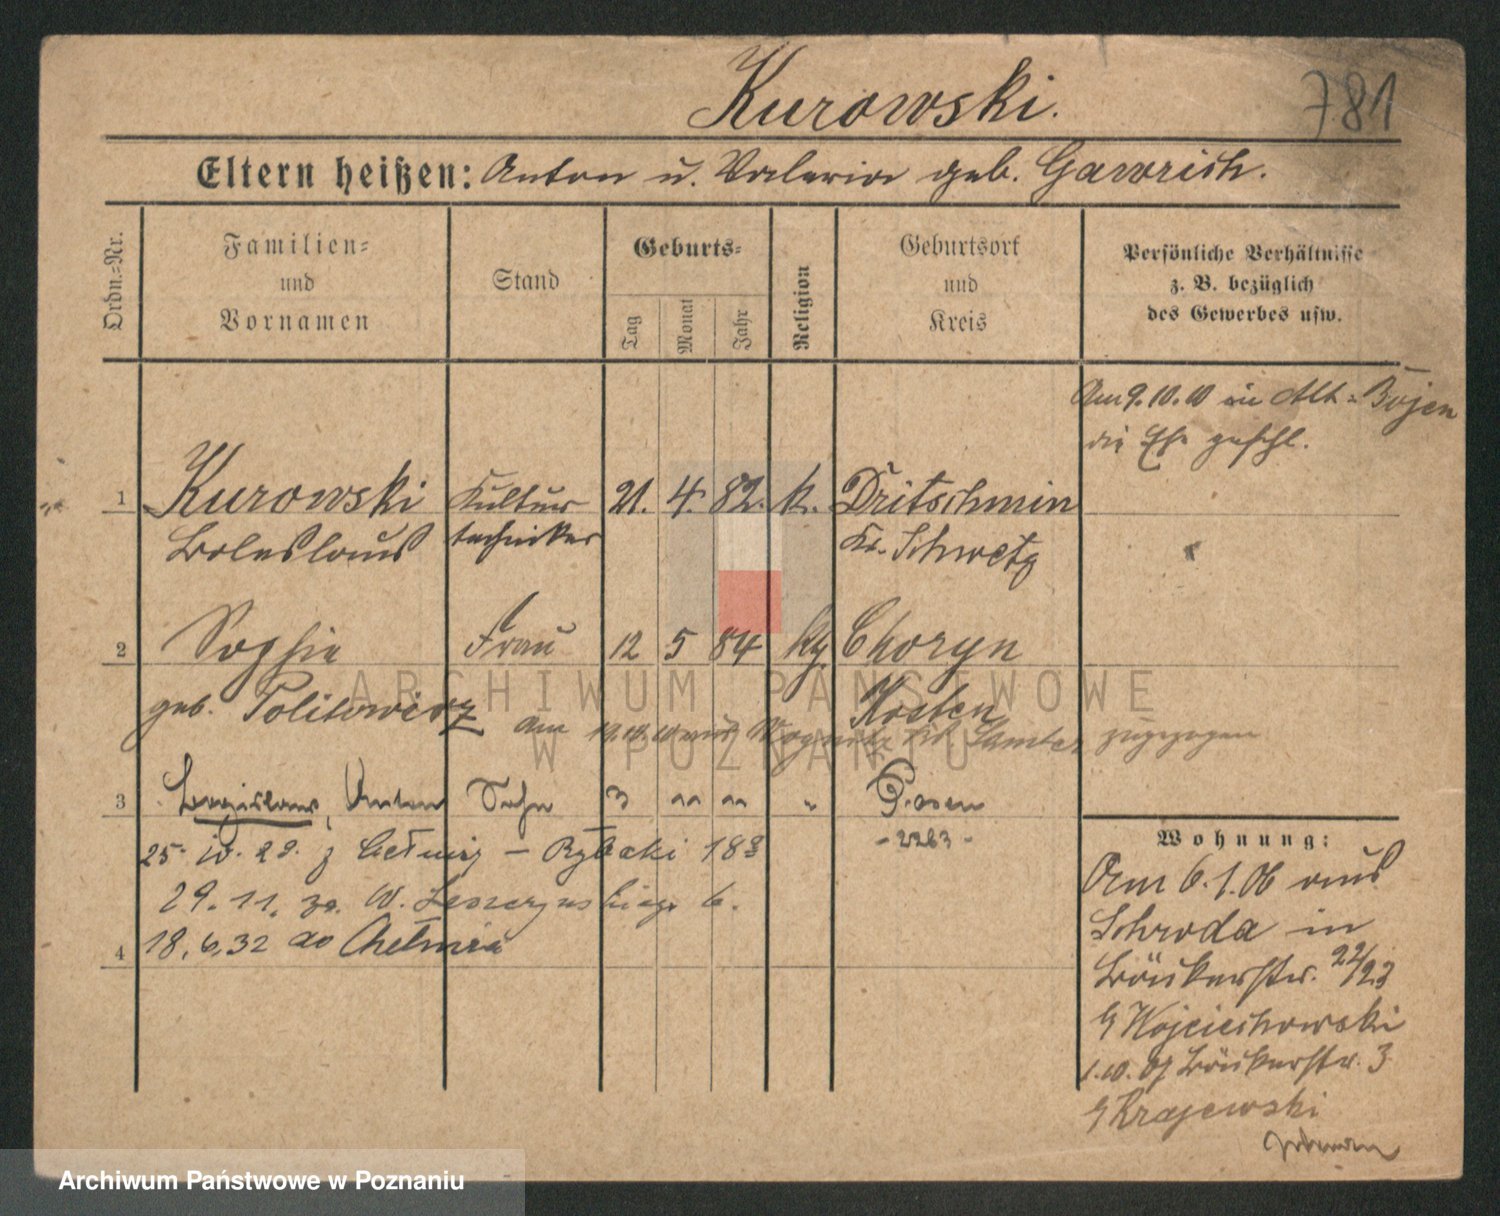 Kurowski.
781
Eltern heißen: Anton u. Valeria geb. Gawrich.
Ordn.=Nr.
Familien=
und
Vornamen
Stand
Geburts=
Tag
Monat
Jahr
Religion
Geburtsort
und
Kreis
Persönliche Verhältnisse
z. B. bezüglich
des Gewerbes usw.
Am 9.10.10 in Alt=Bojen
die Ehe geschl.
1 Kurowski Kultur 21. 4. 82. k. Dritschmin
Boleslaus techniker Kr. Schwetz
2 Sophie Frau 12 5 84 kg Choryn
geb. Politowicz Kosten
am aus Kr. Samter zugezogen
3 Anton Sohn 3 Posen
- 2263 -
25. 10. 29. z Chełmży — Rybaki 18
29. 11. 30. W. 6.
4 18.6.32 do Chełmża
Wohnung:
Am 6.1.06 aus
Schroda in
Bäckerstr. 22/23
b/ Wojciechowski
1.10. 07 Bäckerstr. 3
b/ Krajewski
ARCHIWUM PAŃSTWOWE
W POZNANIU
Archiwum Państwowe w Poznaniu